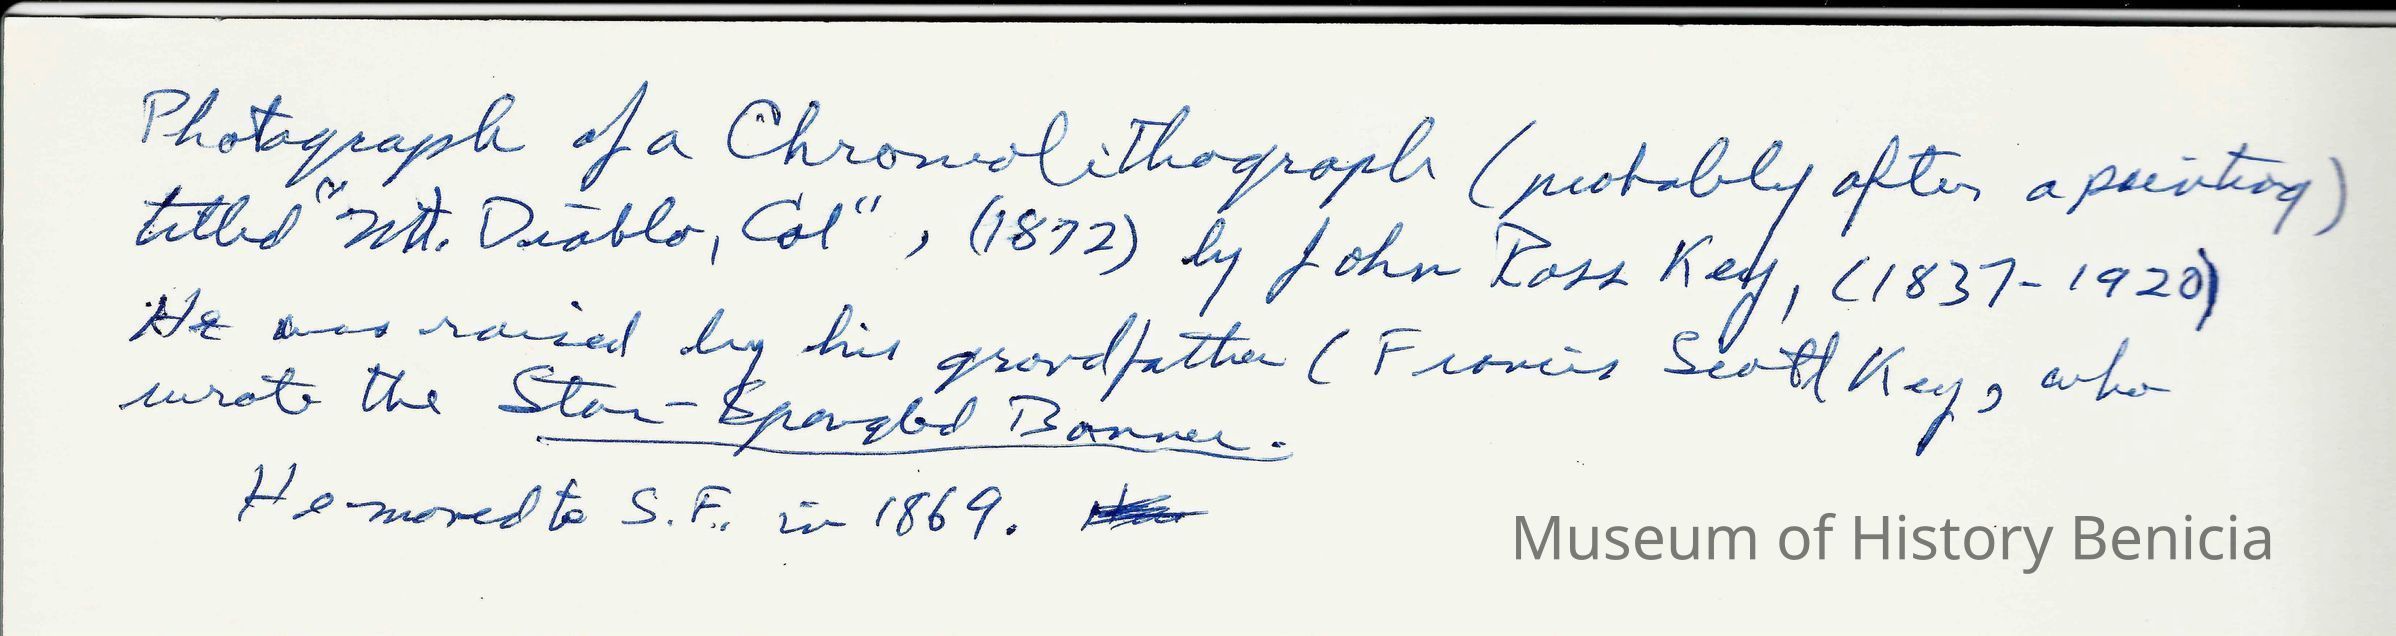 Photograph of a Chromolithograph (probably after a painting)
titled "Mt. Diablo, Cal", (1872) by John Ross Key, (1837-1920)
He was raised by his grandfather (Francis Scott Key, who
wrote the Star-Spangled Banner.
He moved to S.F. in 1869.
Museum of History Benicia